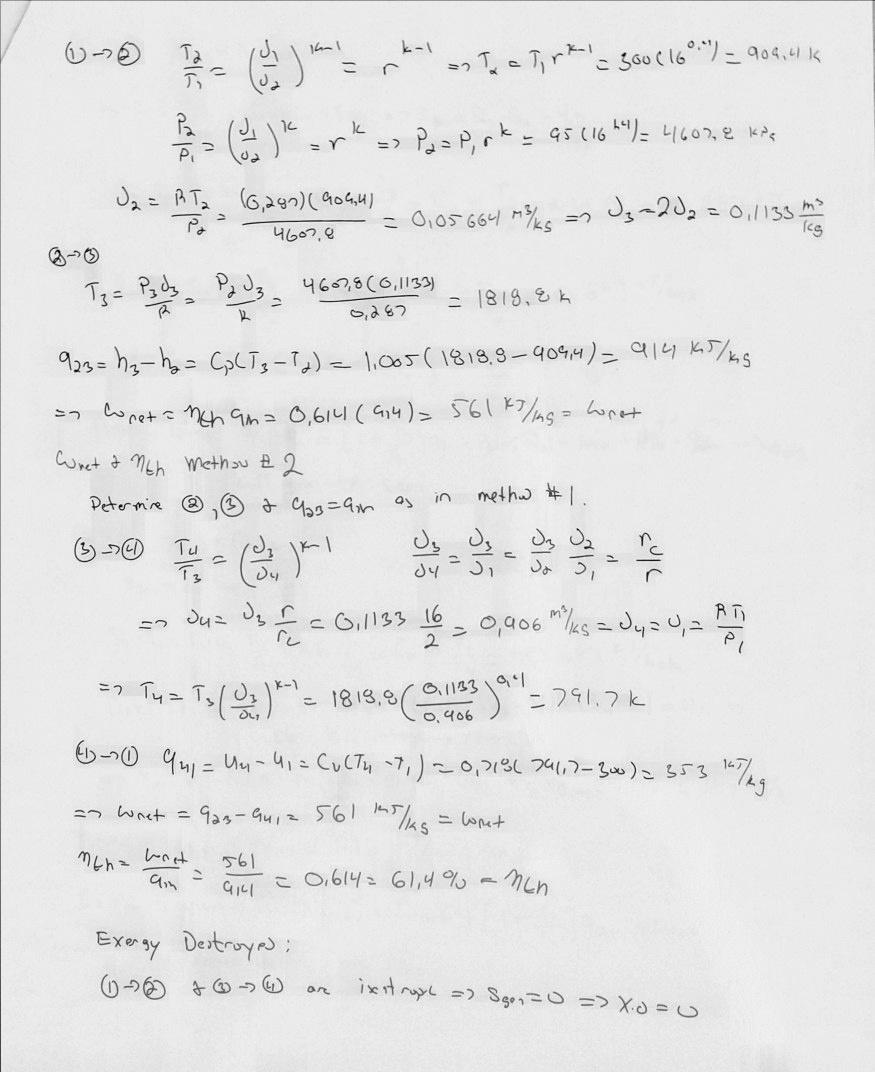 ① → ② T₂/T₁ = (υ₁/υ₂)^(k-1) = r^(k-1) => T₂ = T₁ r^(k-1) = 300(16^0.4) = 909.4 K
P₂/P₁ = (υ₁/υ₂)^k = r^k => P₂ = P₁ r^k = 95(16^1.4) = 4607.8 kPa
υ₂ = RT₂/P₂ = (0.287)(909.4)/4607.8 = 0.05664 m³/kg => υ₃ = 2υ₂ = 0.1133 m³/kg
② → ③
T₃ = P₃υ₃/R = P₂υ₃/R = 4607.8(0.1133)/0.287 = 1818.8 K
q₂₃ = h₃ - h₂ = Cp(T₃ - T₂) = 1.005(1818.8 - 909.4) = 914 kJ/kg
=> ωnet = ηth qin = 0.614(914) = 561 kJ/kg = ωnet
ωnet & ηth Method # 2
Determine ②, ③ & q₂₃ = qin as in method #1.
③ → ④ T₄/T₃ = (υ₃/υ₄)^(k-1) υ₃/υ₄ = υ₃/υ₁ = υ₃/υ₂ υ₂/υ₁ = rc/r
=> υ₄ = υ₃ r/rc = 0.1133 16/2 = 0.906 m³/kg = υ₄ = υ₁ = RT₁/P₁
=> T₄ = T₃(υ₃/υ₄)^(k-1) = 1818.8(0.1133/0.906)^0.4 = 791.7 K
④ → ① q₄₁ = u₄ - u₁ = Cv(T₄ - T₁) = 0.718(791.7 - 300) = 353 kJ/kg
=> ωnet = q₂₃ - q₄₁ = 561 kJ/kg = ωnet
ηth = ωnet/qin = 561/914 = 0.614 = 61.4% = ηth
Exergy Destroyed:
① → ② & ③ → ④ are isentropic => Sgen = 0 => X.D = 0